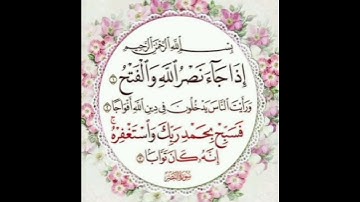 بِسْمِ اللَّهِ الرَّحْمَٰنِ الرَّحِيمِ
إِذَا جَاءَ نَصْرُ اللَّهِ وَالْفَتْحُ ١
وَرَأَيْتَ النَّاسَ يَدْخُلُونَ فِي دِينِ اللَّهِ أَفْوَاجًا ٢
فَسَبِّحْ بِحَمْدِ رَبِّكَ وَاسْتَغْفِرْهُ ۚ
إِنَّهُ كَانَ تَوَّابًا ٣
سورة النصر